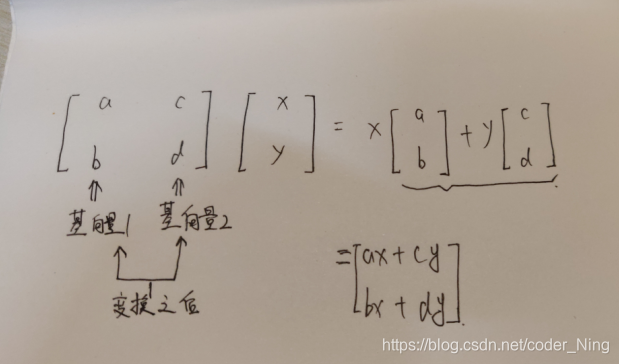 [a c] [x] = x[a] + y[c]
[b d] [y] [b] [d]
基向量1 基向量2
变换之后
=[ax+cy]
[bx+dy]
https://blog.csdn.net/coder_Ning